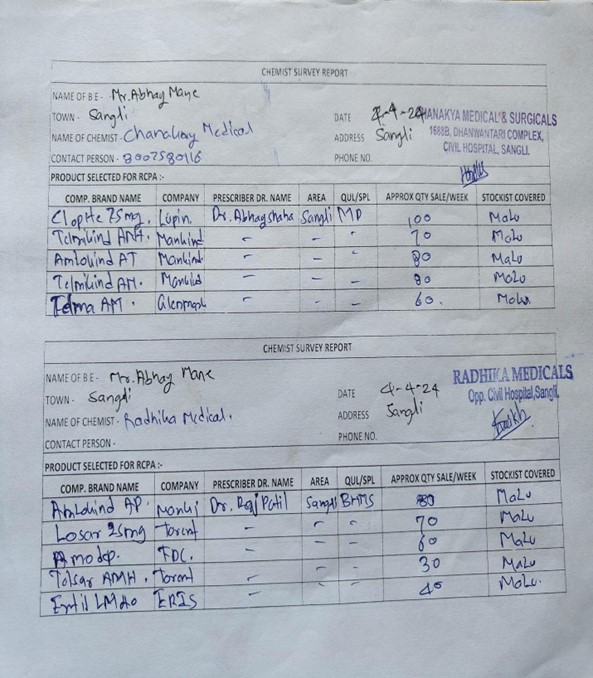 CHEMIST SURVEY REPORT
NAME OF BE - Mr. Abhay Mane
TOWN - Sangli DATE 4-4-24 CHANAKYA MEDICAL & SURGICALS
1688B, DHANWANTARI COMPLEX,
NAME OF CHEMIST - Chanakay Medical ADDRESS Sangli CIVIL HOSPITAL, SANGLI.
CONTACT PERSON - PHONE NO.
PRODUCT SELECTED FOR RCPA :-
COMP. BRAND NAME COMPANY PRESCRIBER DR. NAME AREA QUL/SPL APPROX QTY SALE/WEEK STOCKIST COVERED
75mg. Lupin. Dr. Abhay shaha Sangli MD 100 Malu
Telmikind AMH. Mankind - - " 70 Malu
Amlokind AT Mankind - - " 80 Malu
Telmikind AM. Mankind - - - 80 Malu
Telma AM. Glenmark - - - 60. Malu
CHEMIST SURVEY REPORT
NAME OF BE - Mr. Abhay Mane
TOWN - Sangli DATE 4-4-24 RADHIKA MEDICALS
NAME OF CHEMIST - Radhika Medical. ADDRESS Sangli Opp. Civil Hospital, Sangli.
CONTACT PERSON - PHONE NO.
PRODUCT SELECTED FOR RCPA :-
COMP. BRAND NAME COMPANY PRESCRIBER DR. NAME AREA QUL/SPL APPROX QTY SALE/WEEK STOCKIST COVERED
Amlokind AP. Manki Dr. Raj Patil Sangli BHMS 80 Malu
Losar 25mg Torent - " " 70 Malu
Amodep. FDC. - - - 60 Malu
Tolsar AMH. Torent - - - 30 Malu
ERIS - " " 40 Malu.